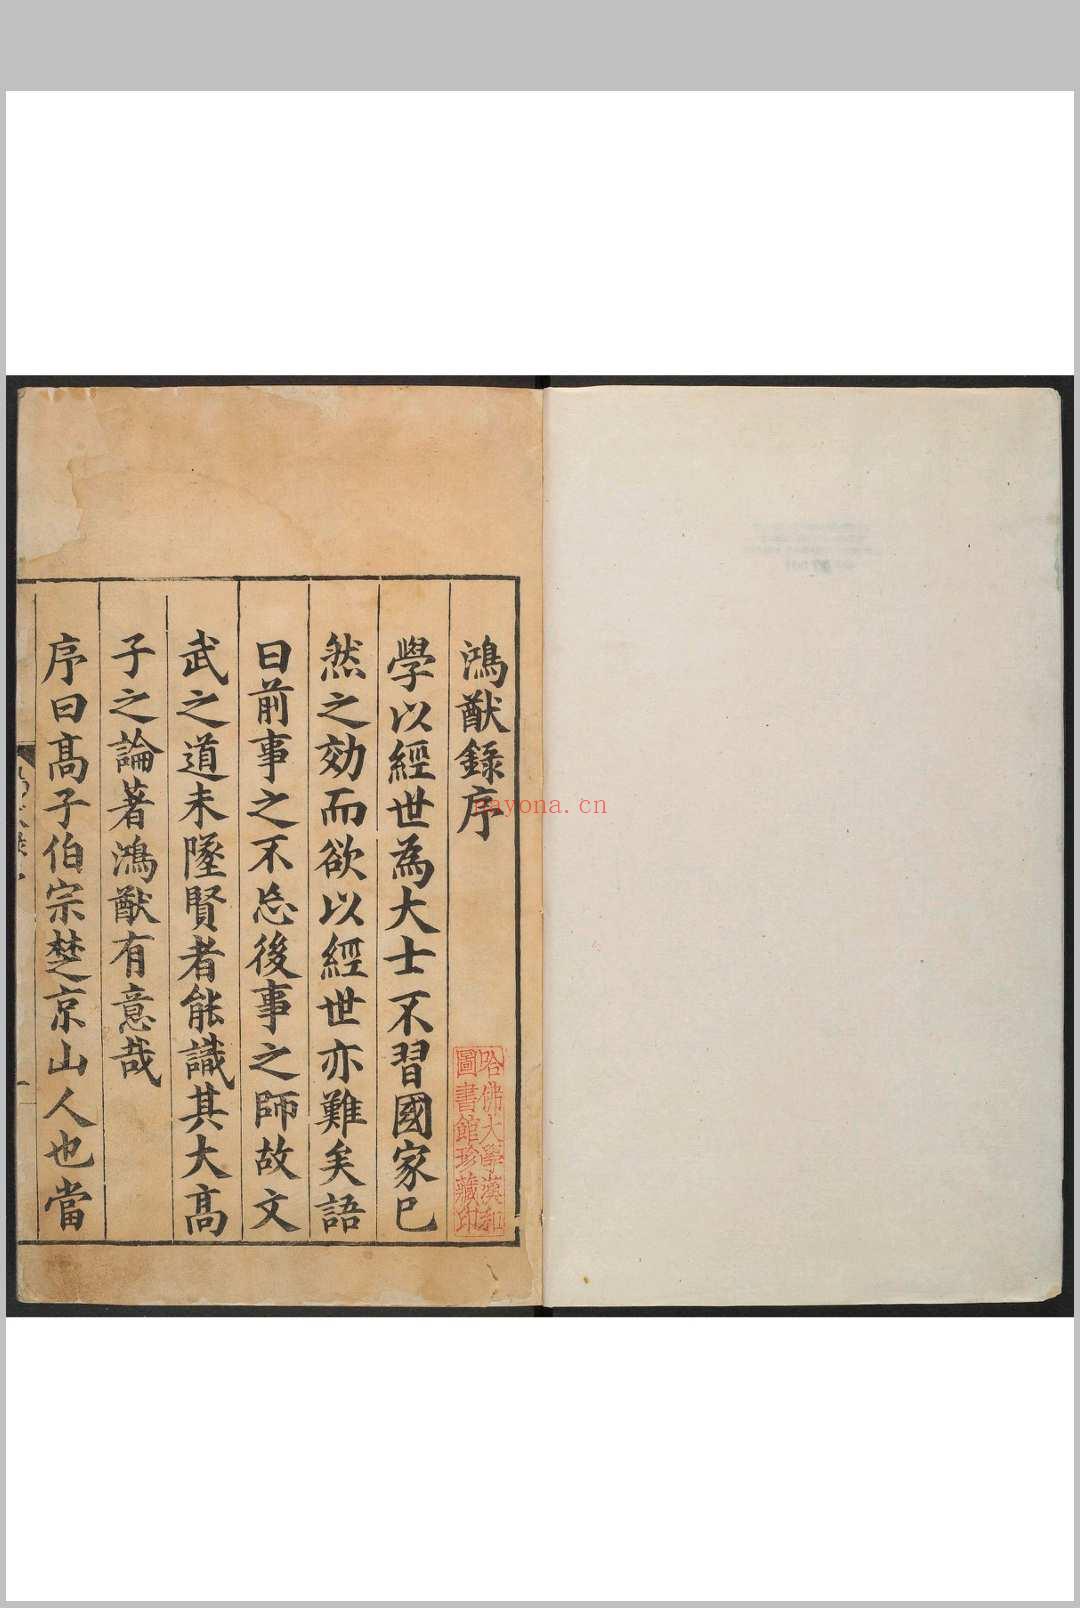 鴻猷錄序
學以經世為大士不習國家已
然之効而欲以經世亦難矣語
曰前事之不忘後事之師故文
武之道未墜賢者能識其大髙
子之論著鴻猷有意哉
序曰髙子伯宗楚京山人也當
哈佛大學漢和
圖書館珍藏印
nayona.cn